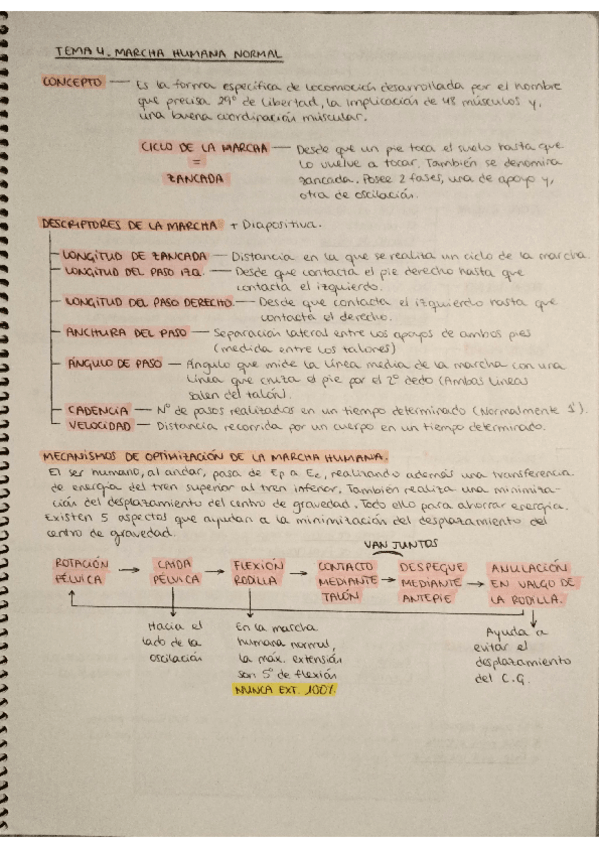 TEMA 4. MARCHA HUMANA NORMAL
CONCEPTO — Es la forma específica de locomoción desarrollada por el hombre
que precisa 29º de libertad, la implicación de 48 músculos y,
una buena coordinación múscular.
CICLO DE LA MARCHA — Desde que un pie toca el suelo hasta que
= lo vuelve a tocar. También se denomina
ZANCADA zancada. Posee 2 fases, una de apoyo y,
otra de oscilación.
DESCRIPTORES DE LA MARCHA + Diapositiva.
LONGITUD DE ZANCADA — Distancia en la que se realiza un ciclo de la marcha.
LONGITUD DEL PASO IZQ. — Desde que contacta el pie derecho hasta que
contacta el izquierdo.
LONGITUD DEL PASO DERECHO. — Desde que contacta el izquierdo hasta que
contacta el derecho.
ANCHURA DEL PASO — Separación lateral entre los apoyos de ambos pies
(medida entre los talones)
ÁNGULO DE PASO — Ángulo que mide la línea media de la marcha con una
línea que cruza el pie por el 2º dedo (Ambas líneas
salen del talón).
CADENCIA — Nº de pasos realizados en un tiempo determinado (Normalmente 1')
VELOCIDAD — Distancia recorrida por un cuerpo en un tiempo determinado.
MECANISMOS DE OPTIMIZACIÓN DE LA MARCHA HUMANA.
El ser humano, al andar, pasa de Ep a Ec, realizando además una transferencia
de energía del tren superior al tren inferior. También realiza una minimiza-
ción del desplazamiento del centro de gravedad. Todo ello para ahorrar energía.
Existen 5 aspectos que ayudan a la minimización del desplazamiento del
centro de gravedad.
VAN JUNTOS
ROTACIÓN → CAIDA → FLEXIÓN → CONTACTO DESPEGUE ANULACIÓN
PÉLVICA PÉLVICA RODILLA MEDIANTE MEDIANTE → EN VALGO DE
TALÓN ANTEPIE LA RODILLA.
Hacia el En la marcha Ayuda a
lado de la humana normal, evitar el
oscilación la máx. extensión desplazamiento
son 5º de flexión del C.G.
NUNCA EXT. 100%.